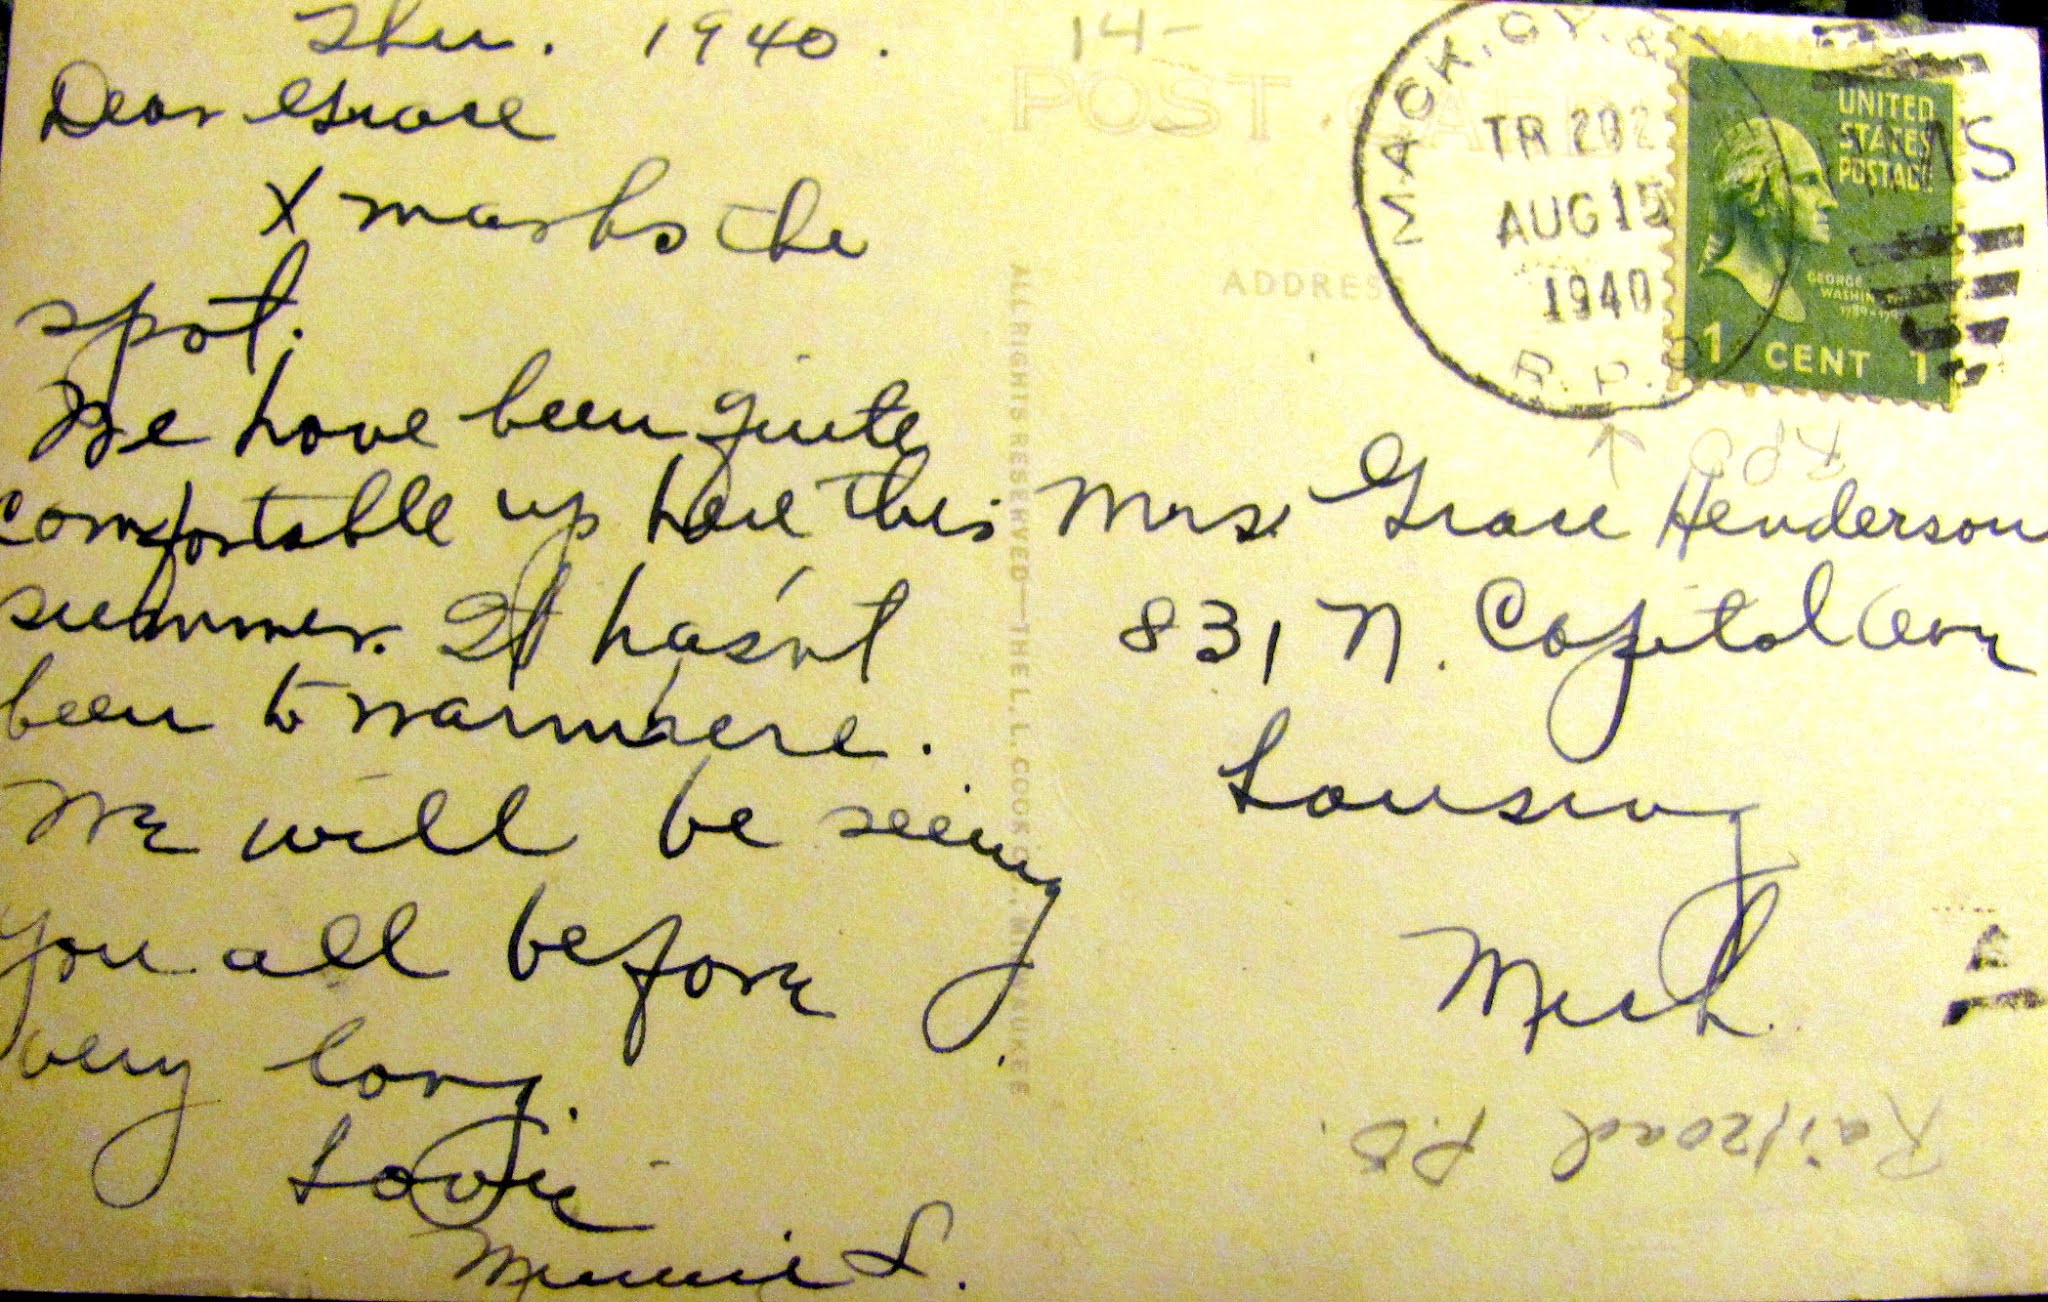 Thur. 1940.
Dear Grace
X marks the
spot.
We have been quite
comfortable up here this
summer. It hasn't
been to warm here.
We will be seeing
you all before
very long.
Love
Minnie L.
14-
POST CARD
ADDRESS
MACK. CY. &
TR 202
AUG 15
1940
R.P.O.
UNITED
STATES
POSTAGE
GEORGE
WASHIN
1 CENT 1
MS
Mrs. Grace Henderson
831 N. Capitol Ave
Lansing
Mich.
Railroad P.O.
ALL RIGHTS RESERVED—THE L. L. COOK CO., MILWAUKEE